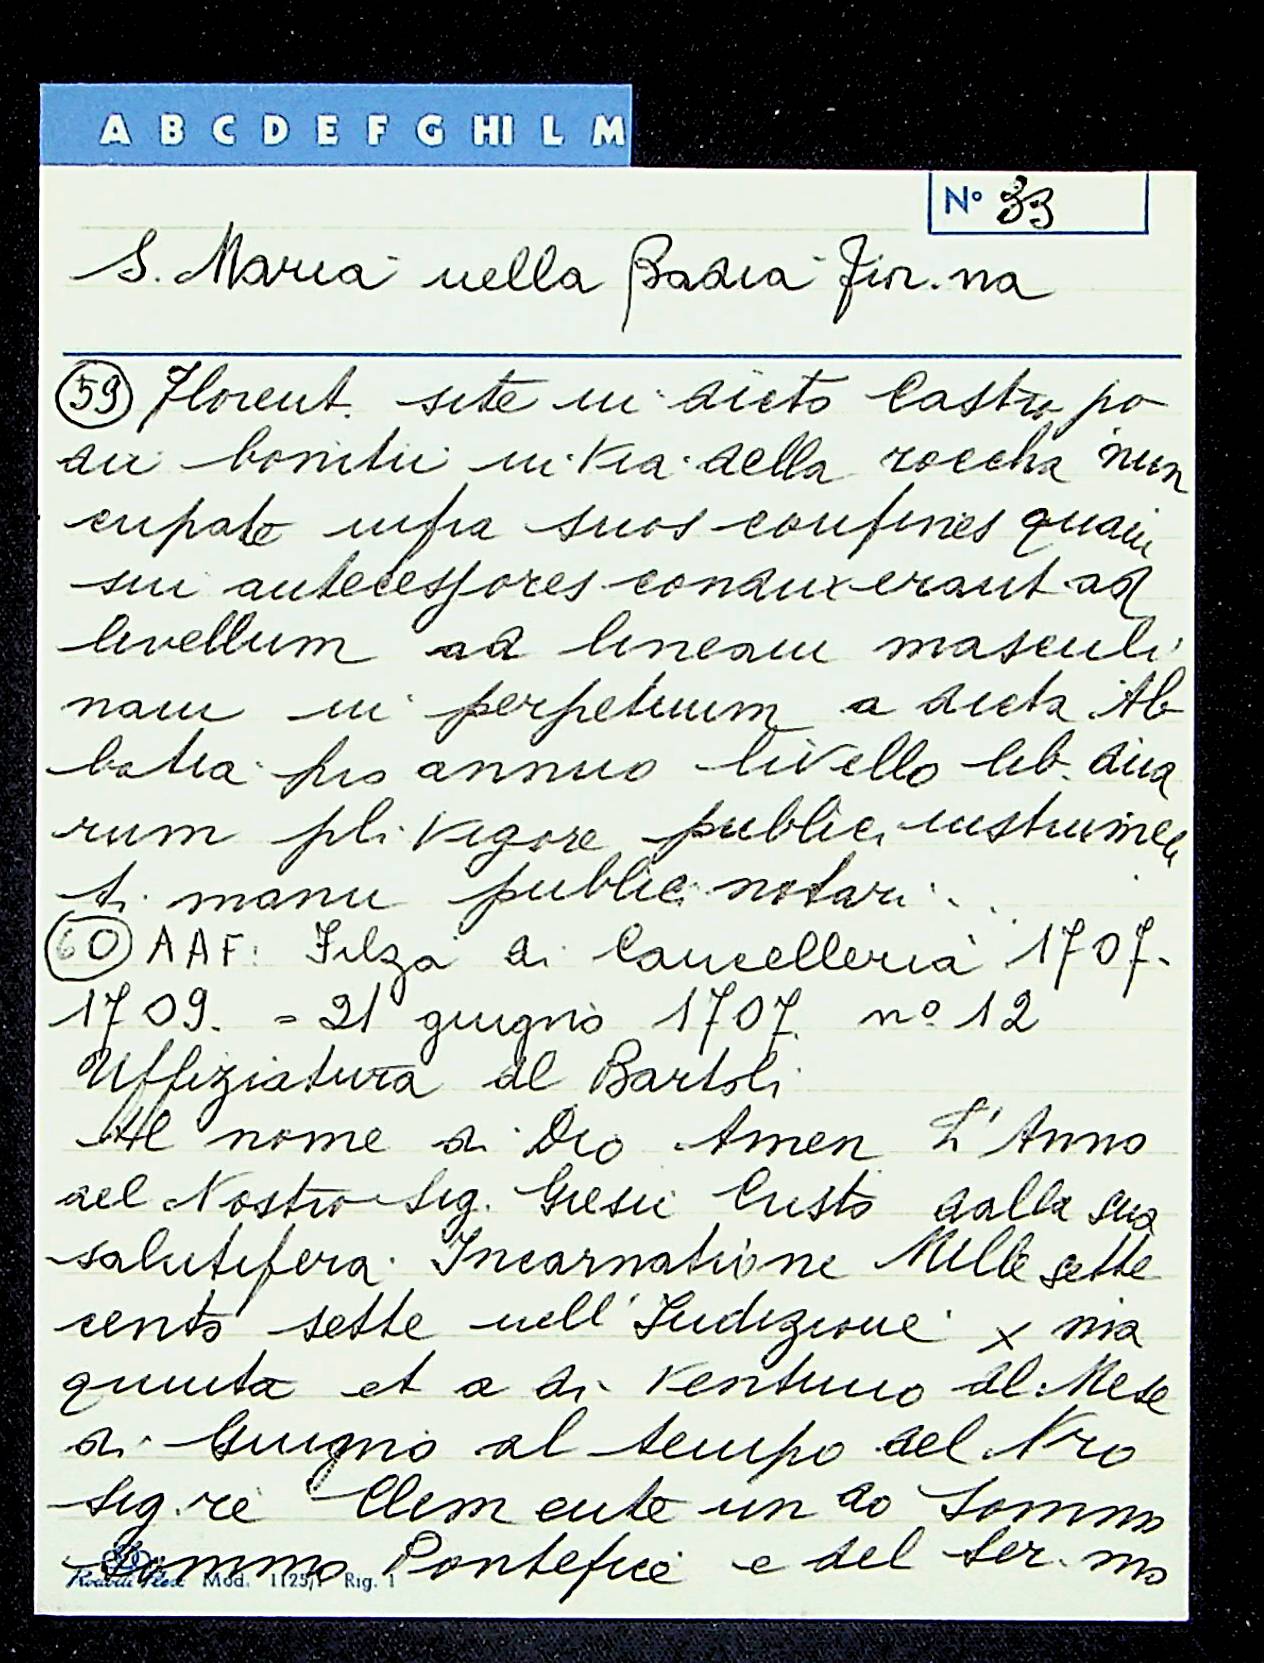 A B C D E F G HI L M
N° 33
S. Maria nella Badia fior.na
59 Florent. site in dicto Castro po
dii bonitii in via della roccha nun
cupate infra suos confines quam
sui antecessores conduxerant ad
livellum ad lineam masculi
nam in perpetuum a dicta Ab
batia pro annuo livello lib. dua
rum pli vigore publici instrumen
ti manu public notari
60 AAF: Filza di Cancelleria 1707-
1709. = 21 giugno 1707. n° 12
Uffiziatura al Bartoli
Al nome di Dio Amen L'Anno
del Nostro Sig. Giesù Cristo dalla sua
salutifera Incarnatione Mille sette
cento sette nell'Indizione X ma
quinta et a di ventuno del Mese
di Giugno al tempo del Nro
Sig.re Clemente un do Sommo
Sommo Pontefice e del Ser.mo
Mod. 1125/1 Rig. 1